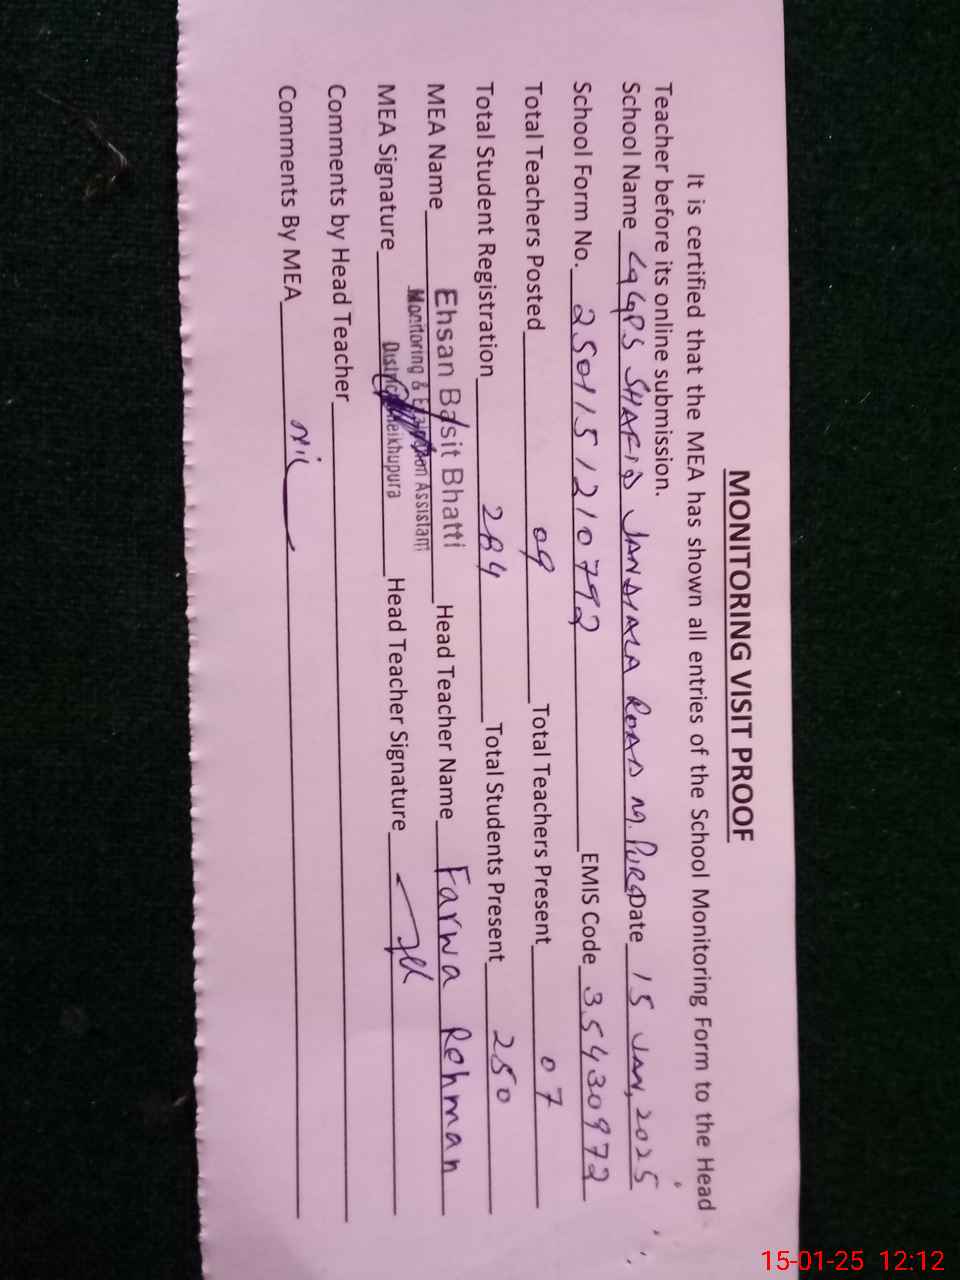 MONITORING VISIT PROOF
It is certified that the MEA has shown all entries of the School Monitoring Form to the Head
Teacher before its online submission.
School Name GGPS SHAFIQ JANDIALA ROAD M. PURA Date 15 JAN, 2025
School Form No. 250115121079 2 EMIS Code 35430972
Total Teachers Posted 09 Total Teachers Present 07
Total Student Registration 284 Total Students Present 250
MEA Name Ehsan Basit Bhatti Head Teacher Name Farwa Rehman
Monitoring & Evaluation Assistant
MEA Signature District Sheikhupura Head Teacher Signature
Comments by Head Teacher
Comments By MEA Nil
15-01-25 12:12